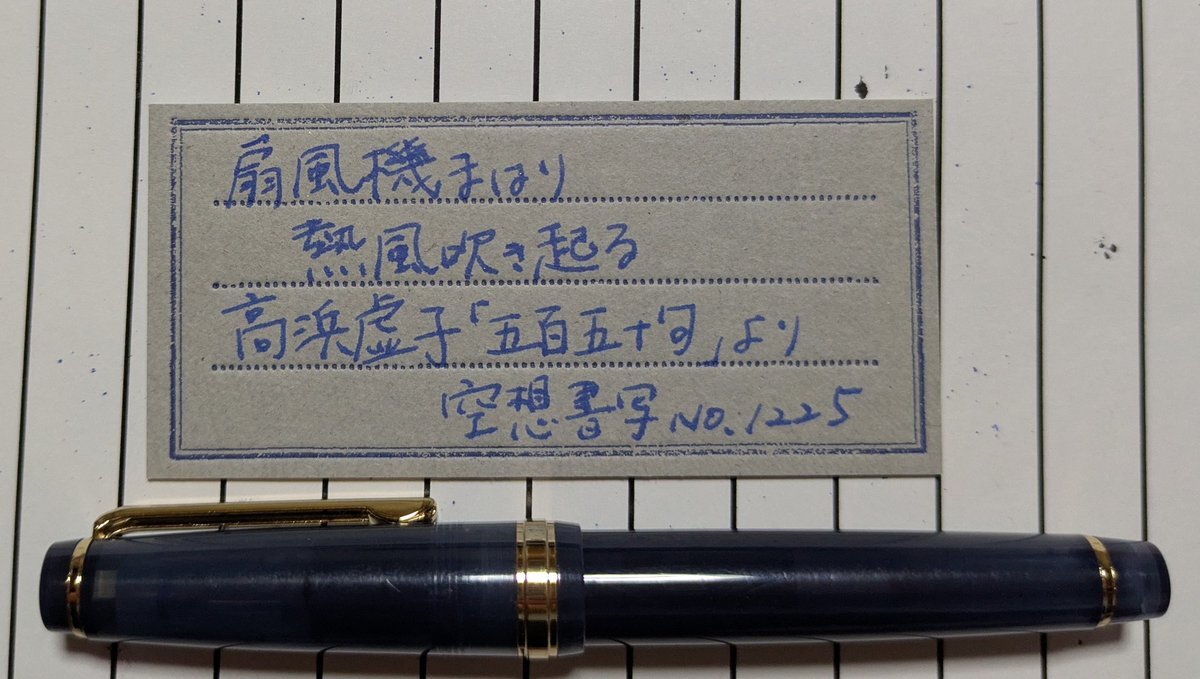 扇風機まはり
熱風吹き起る
高浜虚子「五百五十句」より
空想書写NO.1225